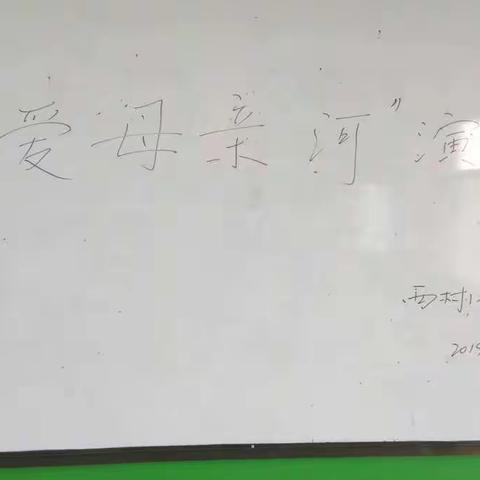 爱母亲河"演
西村小
2019